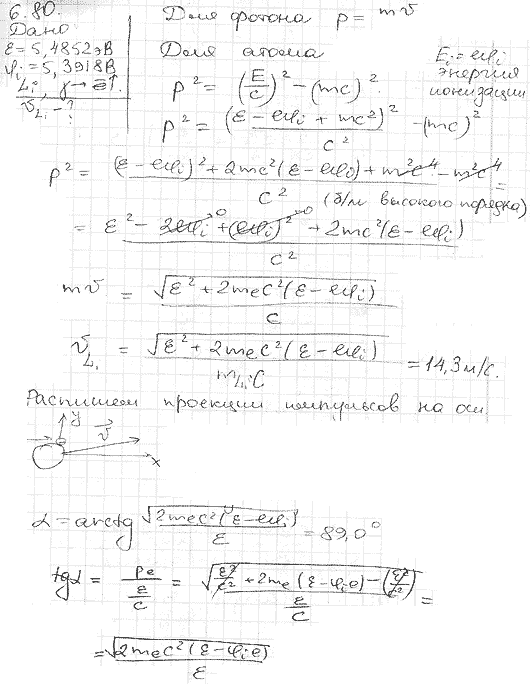 6.80. Для фотона p = mv
Дано
ε = 5,4852эВ
φi = 5,3918В
Li, γ → e↑.
v_Li - ?
Для атома
Ei = eφi
энергия
ионизации
p² = (E/c)² - (mc)²
p² = (ε - eφi + mc²)²/c² - (mc)²
p² = ((ε - eφi)² + 2mc²(ε - eφi) + m²c⁴ - m²c⁴)/c² =
(б/м высокого порядка)
= (ε² - 2eφi + (eφi)² + 2mc²(ε - eφi))/c²
mv = √(ε² + 2mec²(ε - eφi))/c
v_Li = √(ε² + 2mec²(ε - eφi))/(m_Li c) = 14,3м/с.
Распишем проекции импульсов на оси
y
v
x
α = arctg √(2mec²(ε - eφi))/ε = 89,0°
tgα = pe/(ε/c) = √(ε²/c² + 2me(ε - φie) - (ε²/c²))/(ε/c) =
= √(2mec²(ε - φie))/ε